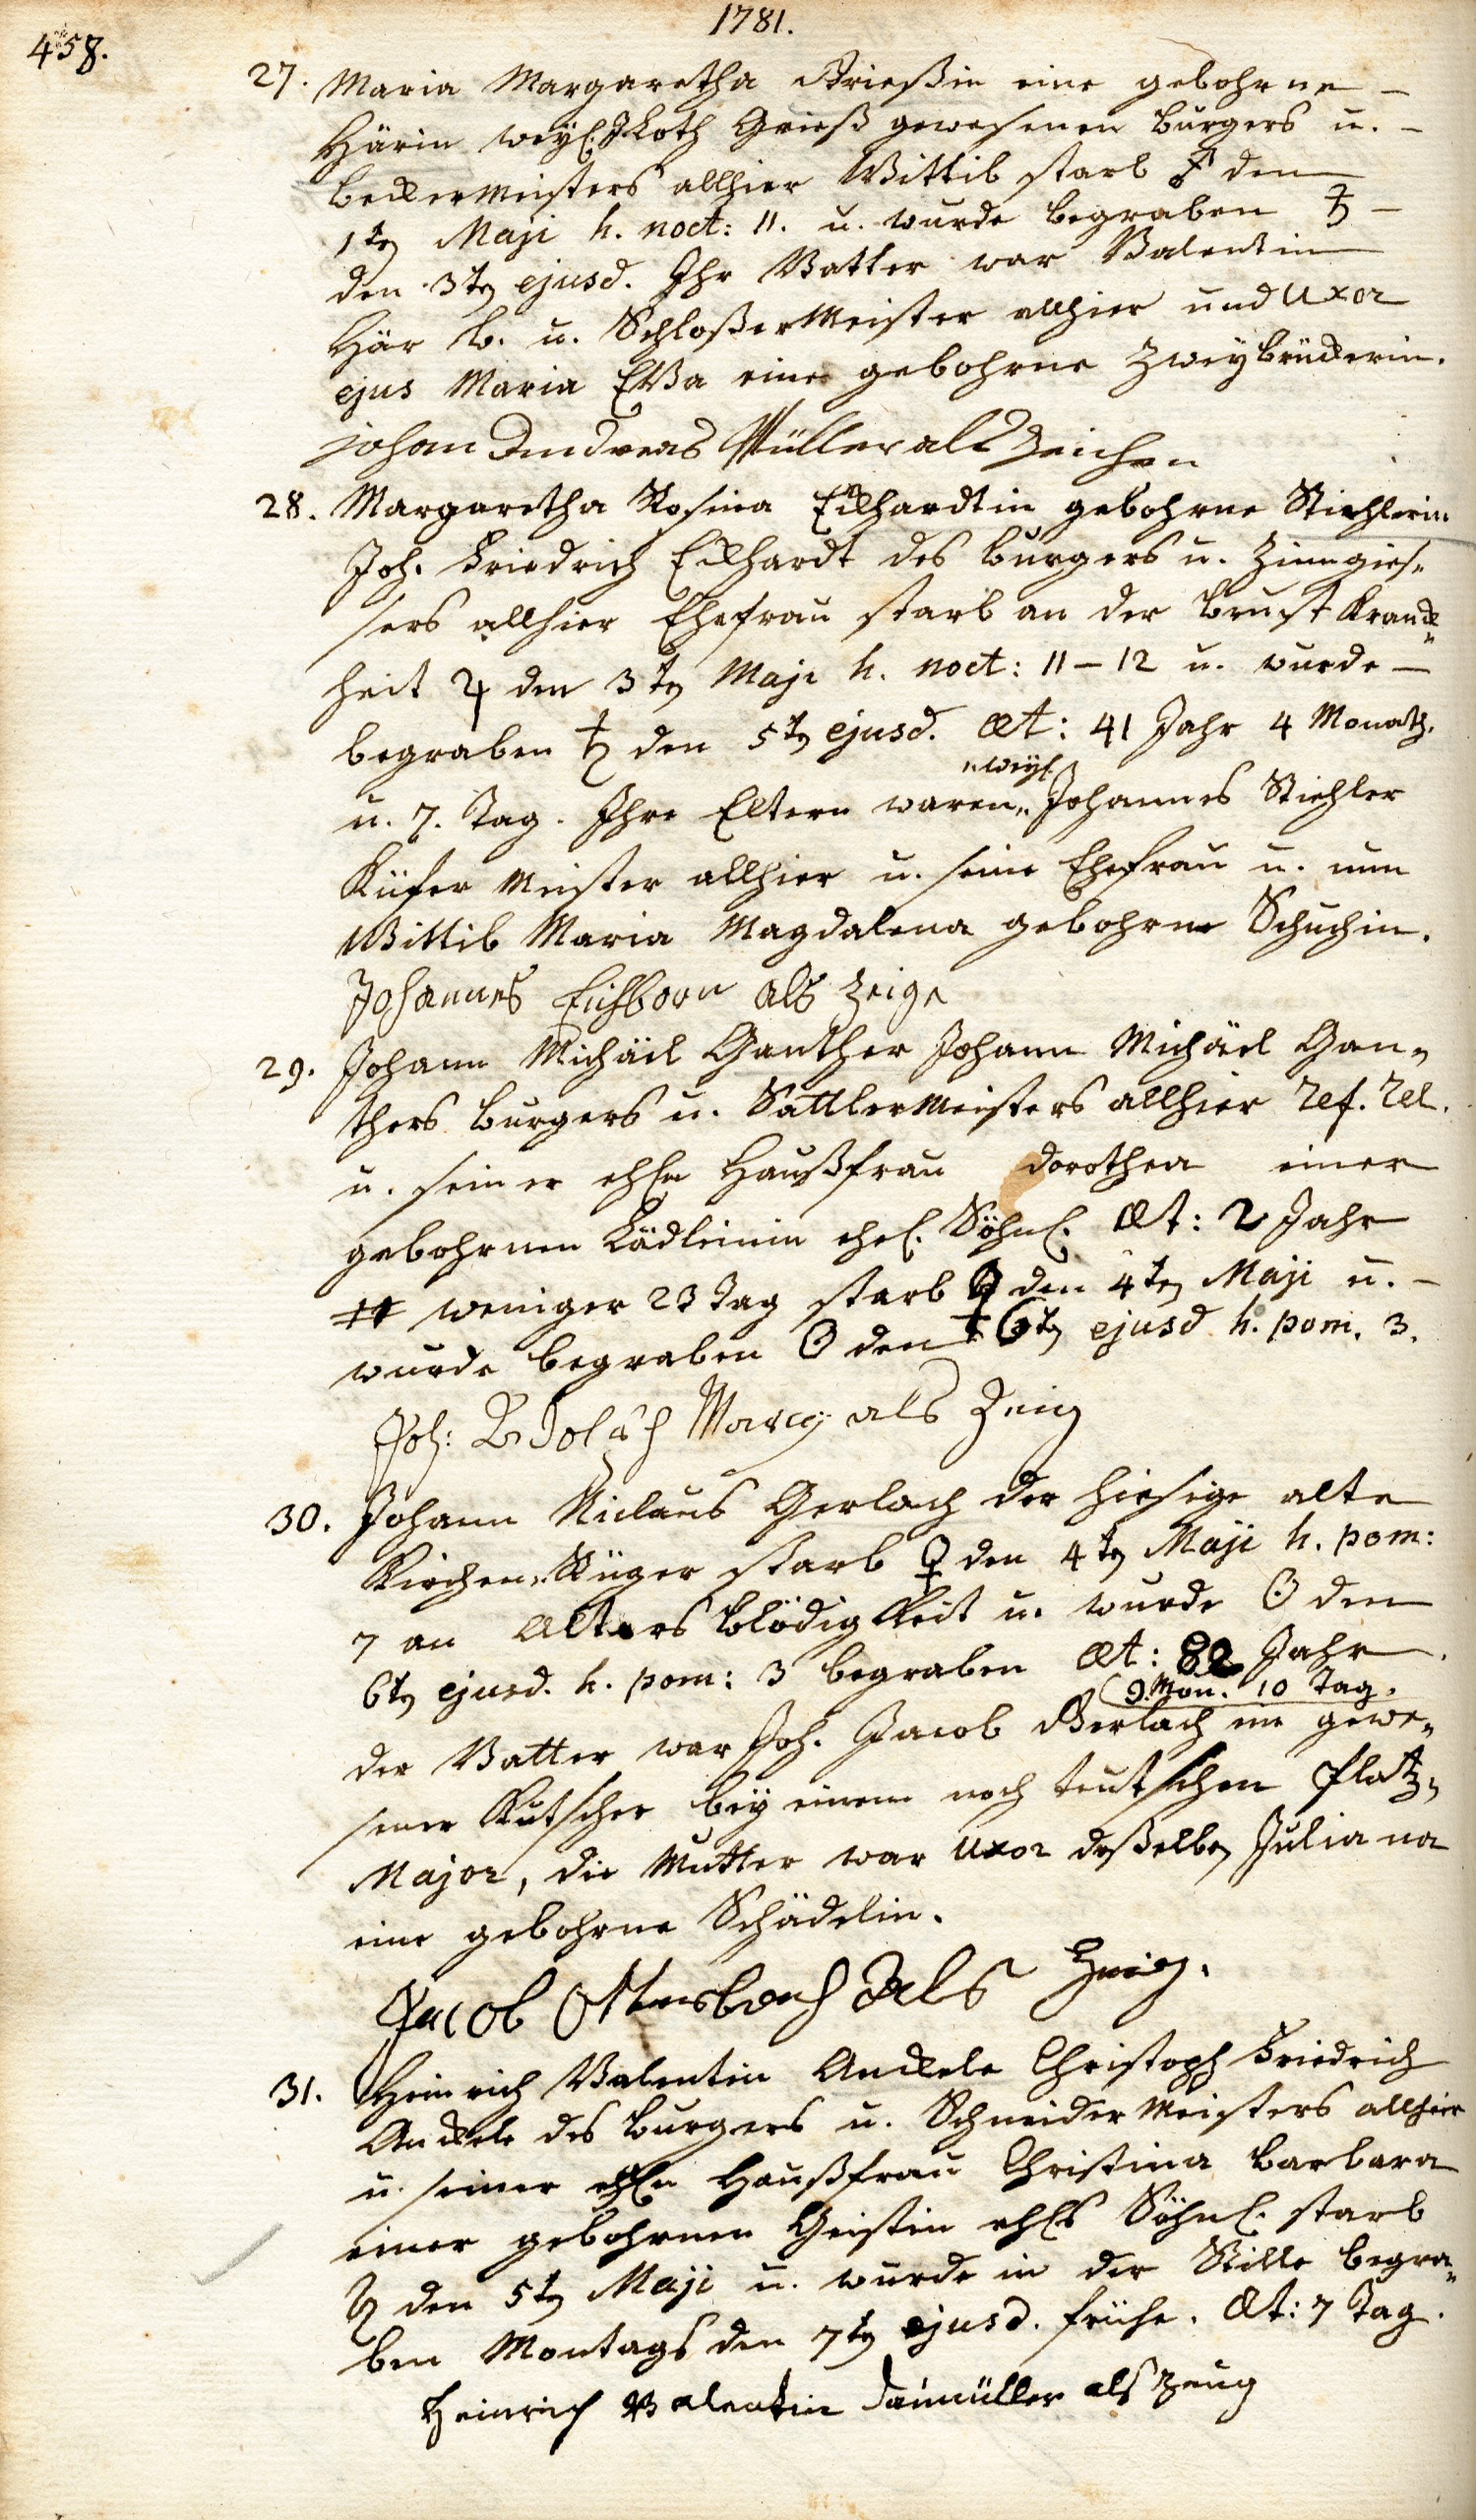 1781.
458.
27. Maria Margaretha Grießin eine gebohrne –
Härin weyl. J Loth Grieß gewesenen burgers u. –
beckermeisters allhier Wittib starb ♂ den
1ten Maji h. noct: 11. u. wurde begraben –
den 3ten ejusd. Ihr Vatter war Valentin
Här b. u. SchloßerMeister allhier und Uxor
ejus Maria EVa eine gebohrne Zweybrückerin.
johan Andreas Müller als Zeichen
28. Margaretha Rosina Eckhardtin gebohrne Stiehlerin
Joh. Friedrich Eckhardt des burgers u. Zinngies„
sers allhier Ehefrau starb an der brust Kranck„
heit ♃ den 3ten Maji h. noct: 11–12 u. wurde –
begraben ♄ den 5ten ejusd. æt: 41 Jahr 4 Monath.
„weyl.
u. 7. Tag. Ihre Eltern waren„ Johannes Stiehler
Küfer Meister allhier u. seine Ehefrau u. nun
Wittib Maria Magdalena gebohrne Schuchin.
Johannes Eichborn als zeige
29. Johann Michäel Ganther Johann Michäel Gan„
thers burgers u. SattlerMeisters allhier ref. rel.
u. seiner ehln Haußfrau dorothea einer
gebohrnen Lädleinin ehel. Söhnl. Æt: 2 Jahr
weniger 23 Tag starb ♀ den 4ten Maji u. –
wurde begraben ☉ den 6ten ejusd h. pom. 3.
Joh: Marx als Zeig
30. Johann Niclaus Gerlach der hiesige alte
Kirchen„Rüger starb ♀ den 4ten Maji h. pom:
7 an Alters blödigkeit u. wurde ☉ den
6ten ejusd. h. pom: 3 begraben æt: 82 Jahr
9. Mon. 10 Tag.
der Vatter war Joh. Jacob Gerlach ein gewe„
sener Kutscher bey einem noch teutschen Platz„
Major, die Mutter war Uxor deßelben Juliana
eine gebohrne Schädelin.
Jacob Ottersbach Als Zeig.
31. Heinrich Valentin Anckele Christoph Friedrich
Anckele des burgers u. Schneider Meisters allhier
u. seiner ehln Haußfrau Christina barbara
einer gebohrnen Geistin ehls Söhnl. starb
♄ den 5ten Maji u. wurde in der Stille begra„
ben Montags den 7ten ejusd. frühe. Æt: 7 Tag.
Heinrich Valentin Daimüller als zeug